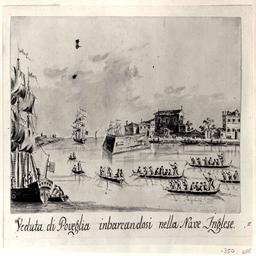 Veduta di Poveglia inbarcandosi nella Nave Inglese.